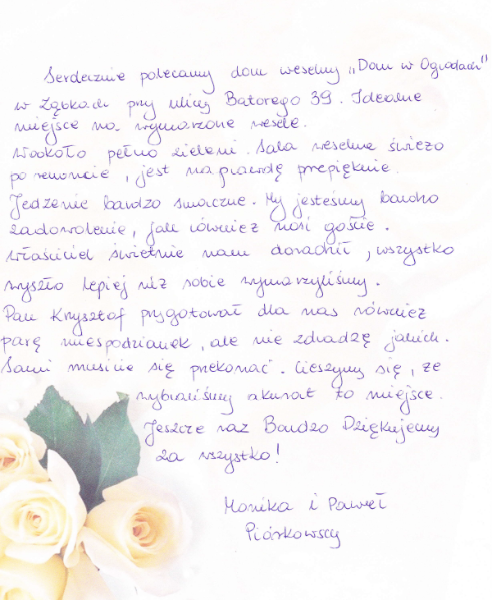 Serdecznie polecamy dom weselny „Dom w Ogrodach"
w Ząbkach przy ulicy Batorego 39. Idealne
miejsce na wymarzone wesele.
Wookoło pełno zieleni. Sala weselna świeżo
po remoncie, jest naprawdę przepięknie.
Jedzenie bardzo smaczne. My jesteśmy bardzo
zadowolenie, jak również nasi goście.
Właściciel świetnie nam doradził, wszystko
wyszło lepiej niż sobie wymarzyliśmy.
Pan Krzysztof przygotował dla nas również
parę niespodzianek, ale nie zdradzę jakich.
Sami musicie się przekonać. Cieszymy się, że
wybraliśmy akurat to miejsce.
Jeszcze raz Bardzo Dziękujemy
za wszystko!
Monika i Paweł
Piórkowscy